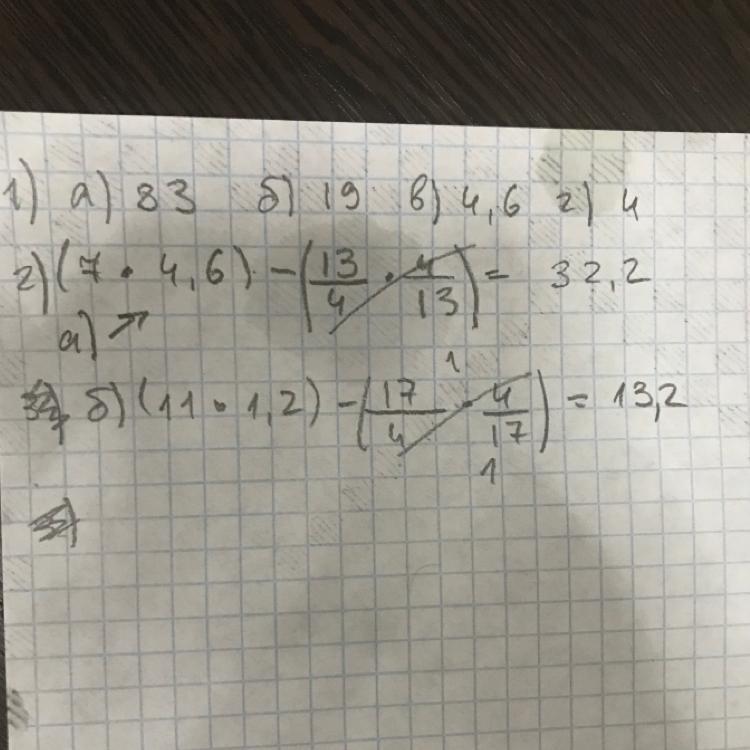 1) а) 83 б) 19 в) 4,6 г) 4
2) (7 · 4,6) - (13/4 · 4/13) = 32,2
а)
б) (11 · 1,2) - (17/4 · 4/17) = 13,2
1
1